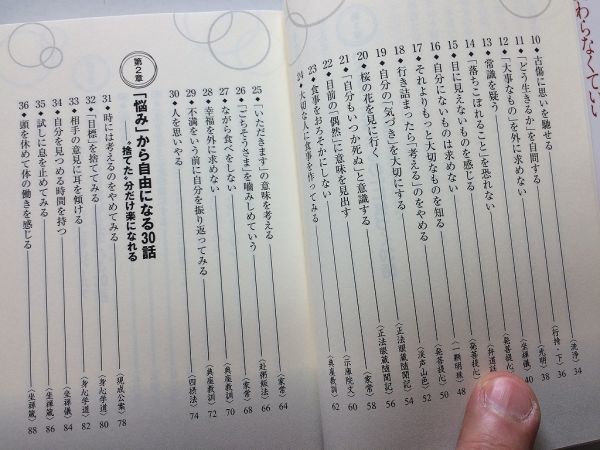 わらなくていい
10 古傷に思いを馳せる 〈洗浄〉 34
11 「どう生きるか」を自問する 〈行持・下〉 36
12 「大事なもの」を外に求めない 〈光明〉 38
13 常識を疑う 〈坐禅儀〉 40
14 「落ちこぼれること」を恐れない 〈発菩提心〉
15 目に見えないものを感じる 〈弁道話〉
16 自分にないものは求めない 〈発菩提心〉
17 それよりもっと大切なものを知る 〈一顆明珠〉 48
18 行き詰まったら「考える」のをやめる 〈発菩提心〉 50
19 自分の「気づき」を大切にする 〈渓声山色〉 52
20 桜の花を見に行く 〈正法眼蔵随聞記〉 54
21 「自分もいつか死ぬ」と意識する 〈正法眼蔵随聞記〉 56
22 目前の「偶然」に意味を見出す 〈家常〉 58
23 食事をおろそかにしない 〈示庫院文〉 60
24 大切な人に食事を作ってみる 〈典座教訓〉 62
25 「いただきます」の意味を考える 〈家常〉 64
26 「ごちそうさま」を噛みしめていう 〈赴粥飯法〉 66
27 ながら食べをしない 〈家常〉 68
28 幸福を外に求めない 〈典座教訓〉 70
29 不満をいう前に自分を振り返ってみる 〈典座教訓〉 72
30 人を思いやる 〈四摂法〉 74
第2章
「悩み」から自由になる30話
――“捨てた”分だけ楽になれる
31 時には考えるのをやめてみる 〈現成公案〉 78
32 「目標」を捨ててみる 〈身心学道〉 80
33 相手の意見に耳を傾ける 〈身心学道〉 82
34 自分を見つめる時間を持つ 〈坐禅儀〉 84
35 試しに息を止めてみる 〈坐禅箴〉 86
36 頭を休めて体の働きを感じる 〈坐禅箴〉 88